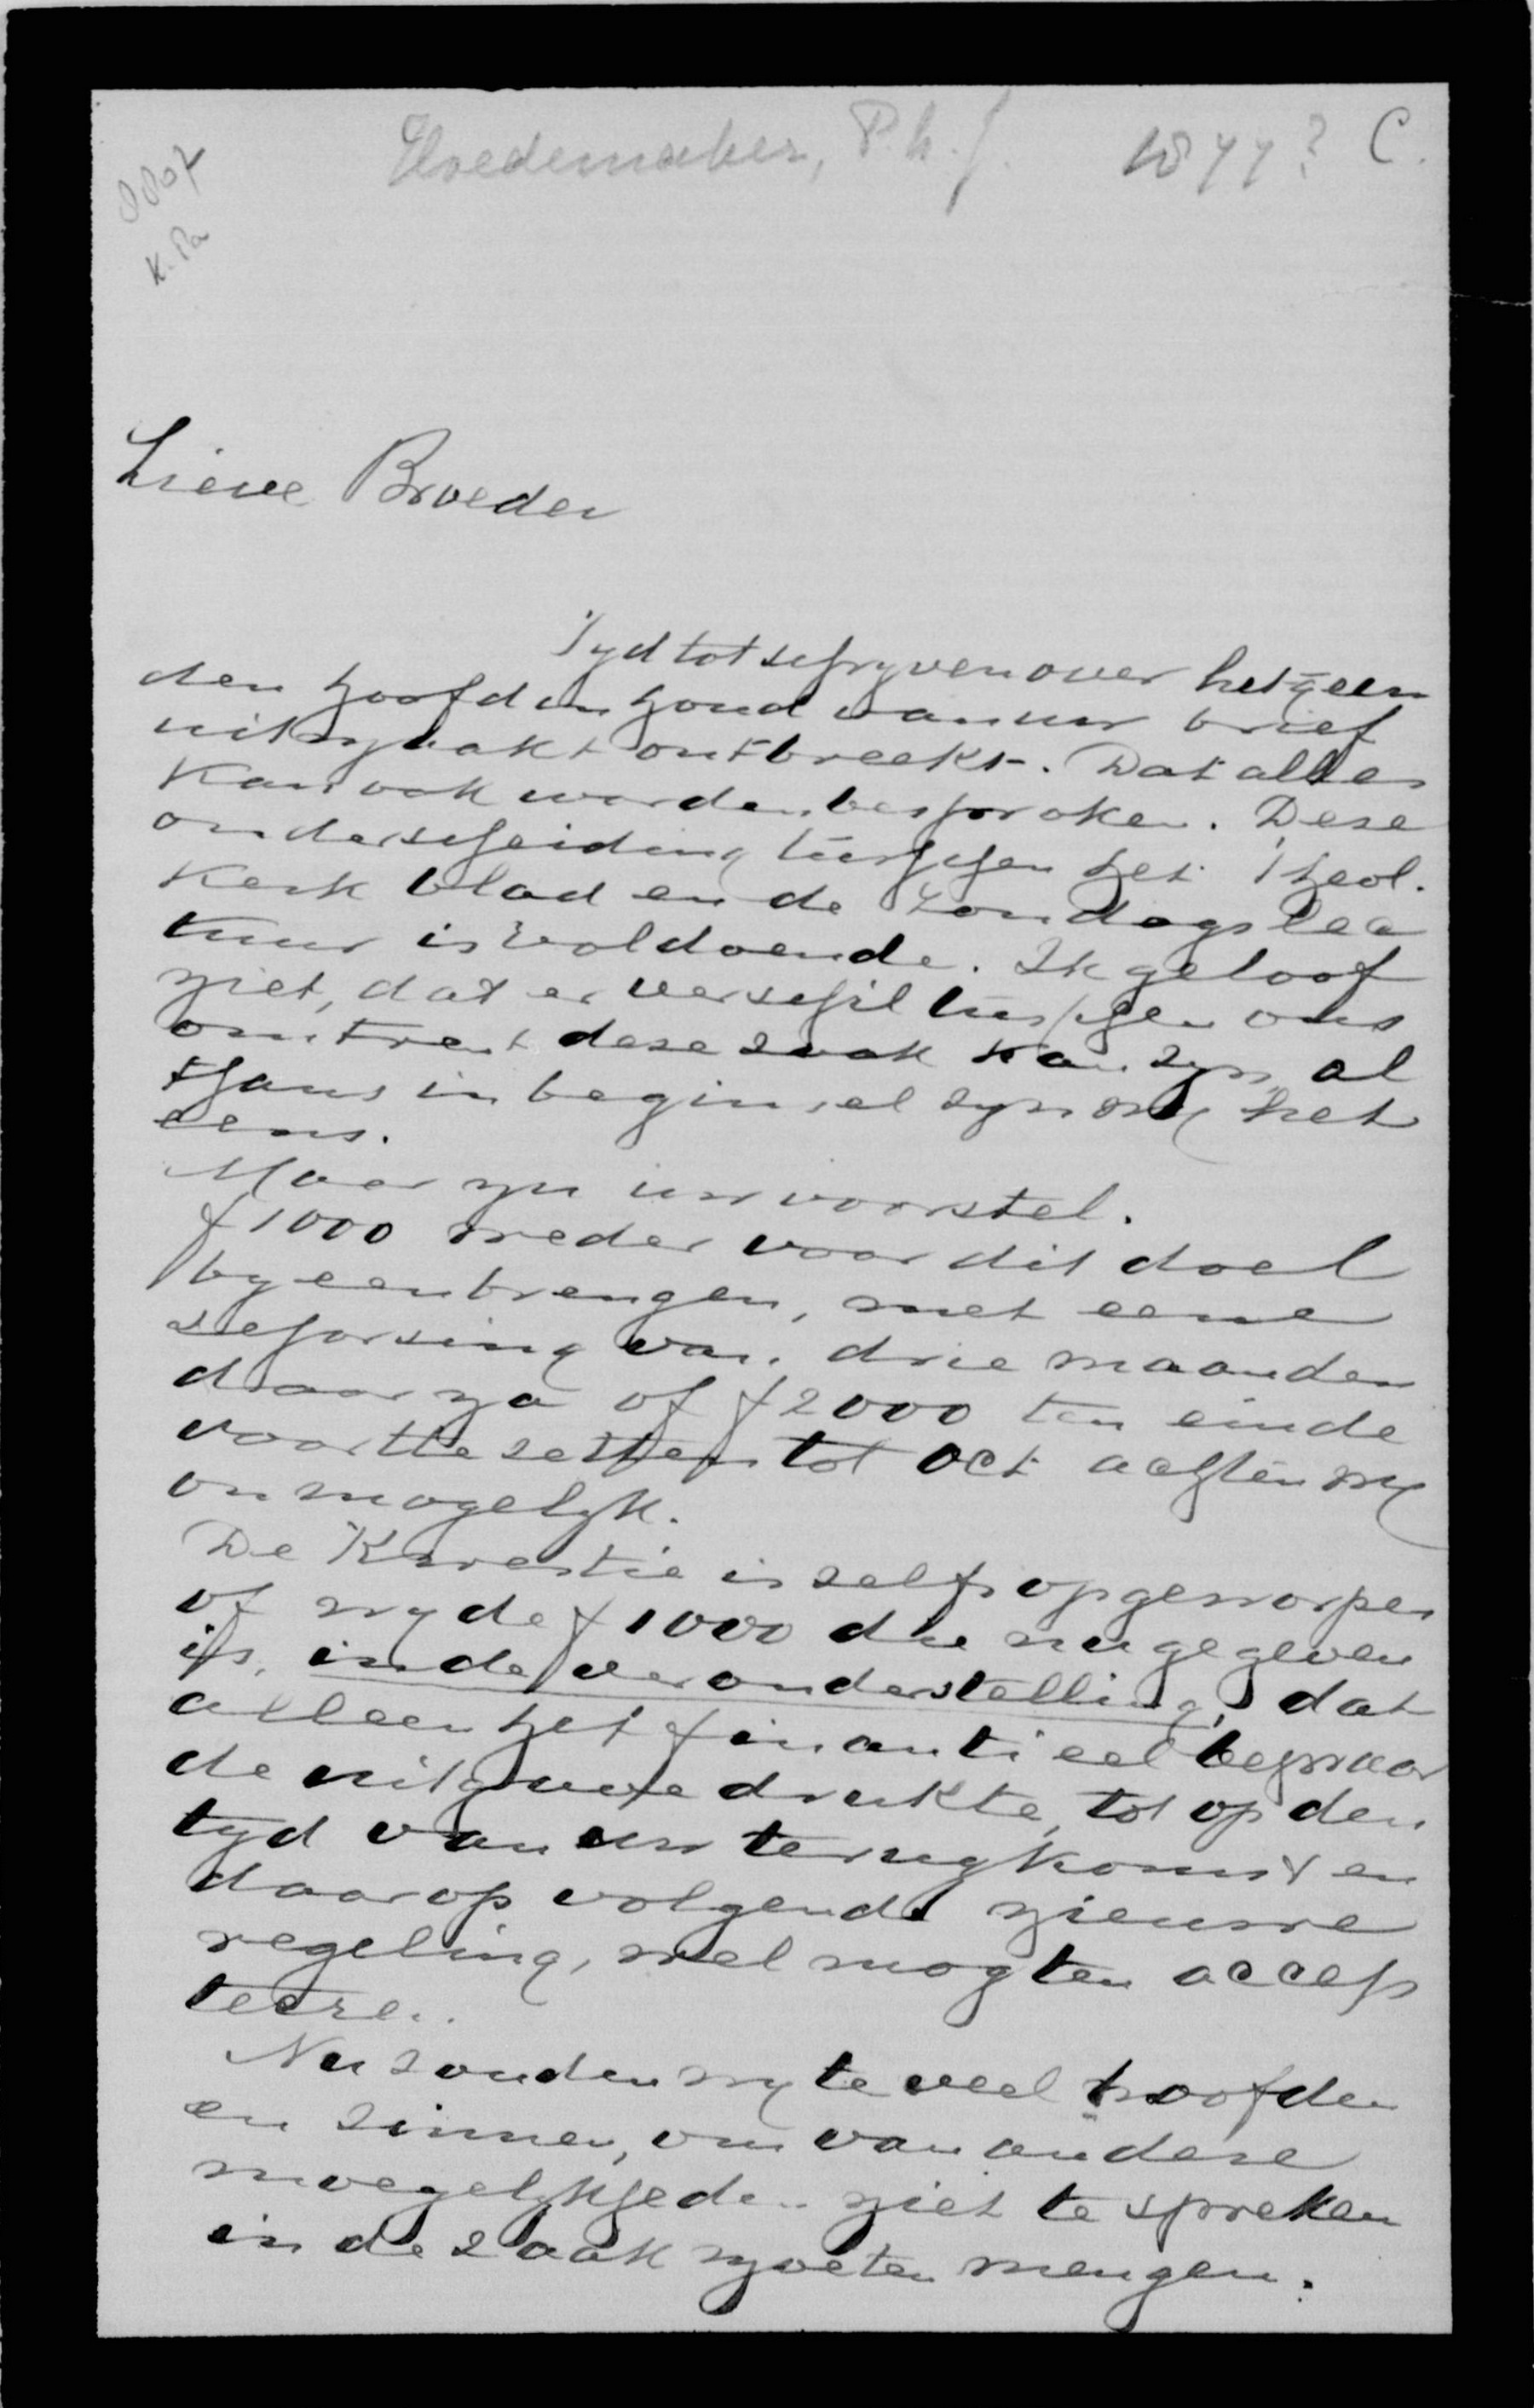 Hoedemaker, Ph. J. 1877? C.
K. Pa
Lieve Broeder
Tyd tot schryven over hetgeen
den hoofdinhoud van uw brief
uitmaakt ontbreekt. Dat alles
kan ook worden besproken. Deze
onderscheiding tusschen het Theol.
Kerkblad en de Zondagslec
tuur is voldoende. Ik geloof
niet, dat er verschil tusschen ons
omtrent deze zaak kan zyn, al
thans in beginsel zyn wy het
eens.
Maar nu uw voorstel.
f 1000 weder voor dit doel
byeenbrengen, met eene
schorsing van drie maanden
daarna of f 2000 ten einde
voort te zetten tot Oct achten wy
onmogelyk.
De Kwestie is zelfs opgeworpen
of wy de f 1000 die nu gegeven
is, in de veronderstelling, dat
alleen het finantieel bezwaar
de uitgave drukte, tot op den
tyd van uw terugkomst en
daarop volgende nieuwe
regeling, wel mogten accep
teeren.
Nu zouden wy te veel hoofden
en zinnen, om van andere
moegelykheden niet te spreken
in de zaak moeten mengen.